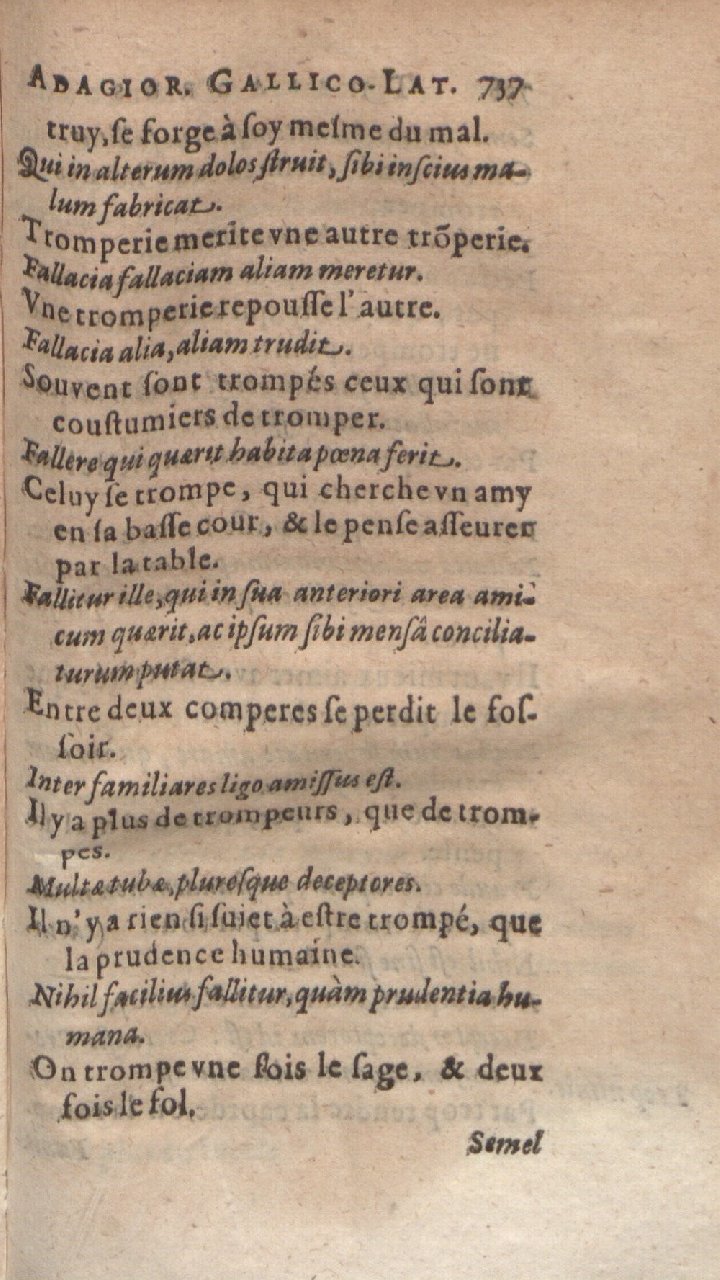 ADAGIOR. GALLICO-LAT. 737
truy, ſe forge à ſoy meſme du mal.
Qui in alterum dolos ſtruit, ſibi inſcius ma-
lum fabricat.
Tromperie merite vne autre trõperie.
Fallacia fallaciam aliam meretur.
Vne tromperie repouſſe l'autre.
Fallacia alia, aliam trudit.
Souvent ſont trompés ceux qui ſont
couſtumiers de tromper.
Fallere qui quærit habita pœna ferit.
Celuy ſe trompe, qui cherche vn amy
en ſa baſſe cour, & le penſe aſſeurer
par la table.
Fallitur ille, qui in ſua anteriori area ami-
cum quærit, ac ipſum ſibi menſâ concilia-
turum putat.
Entre deux comperes ſe perdit le foſ-
ſoir.
Inter familiares ligo amiſſus eſt.
Il y a plus de trompeurs, que de trom-
pes.
Multæ tubæ, plureſque deceptores.
Il n'y a rien ſi ſujet à eſtre trompé, que
la prudence humaine.
Nihil facilius fallitur, quàm prudentia hu-
mana.
On trompe vne fois le ſage, & deux
fois le fol.
Semel